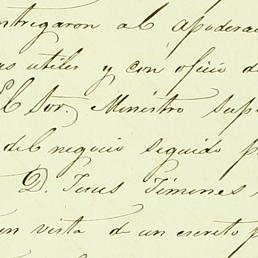 ntregaron al apoderad
as utiles y con oficio d
El Sor. Ministro Sup
del negocio seguido p
D. Jesus Jimenes
en vista de un escreto p